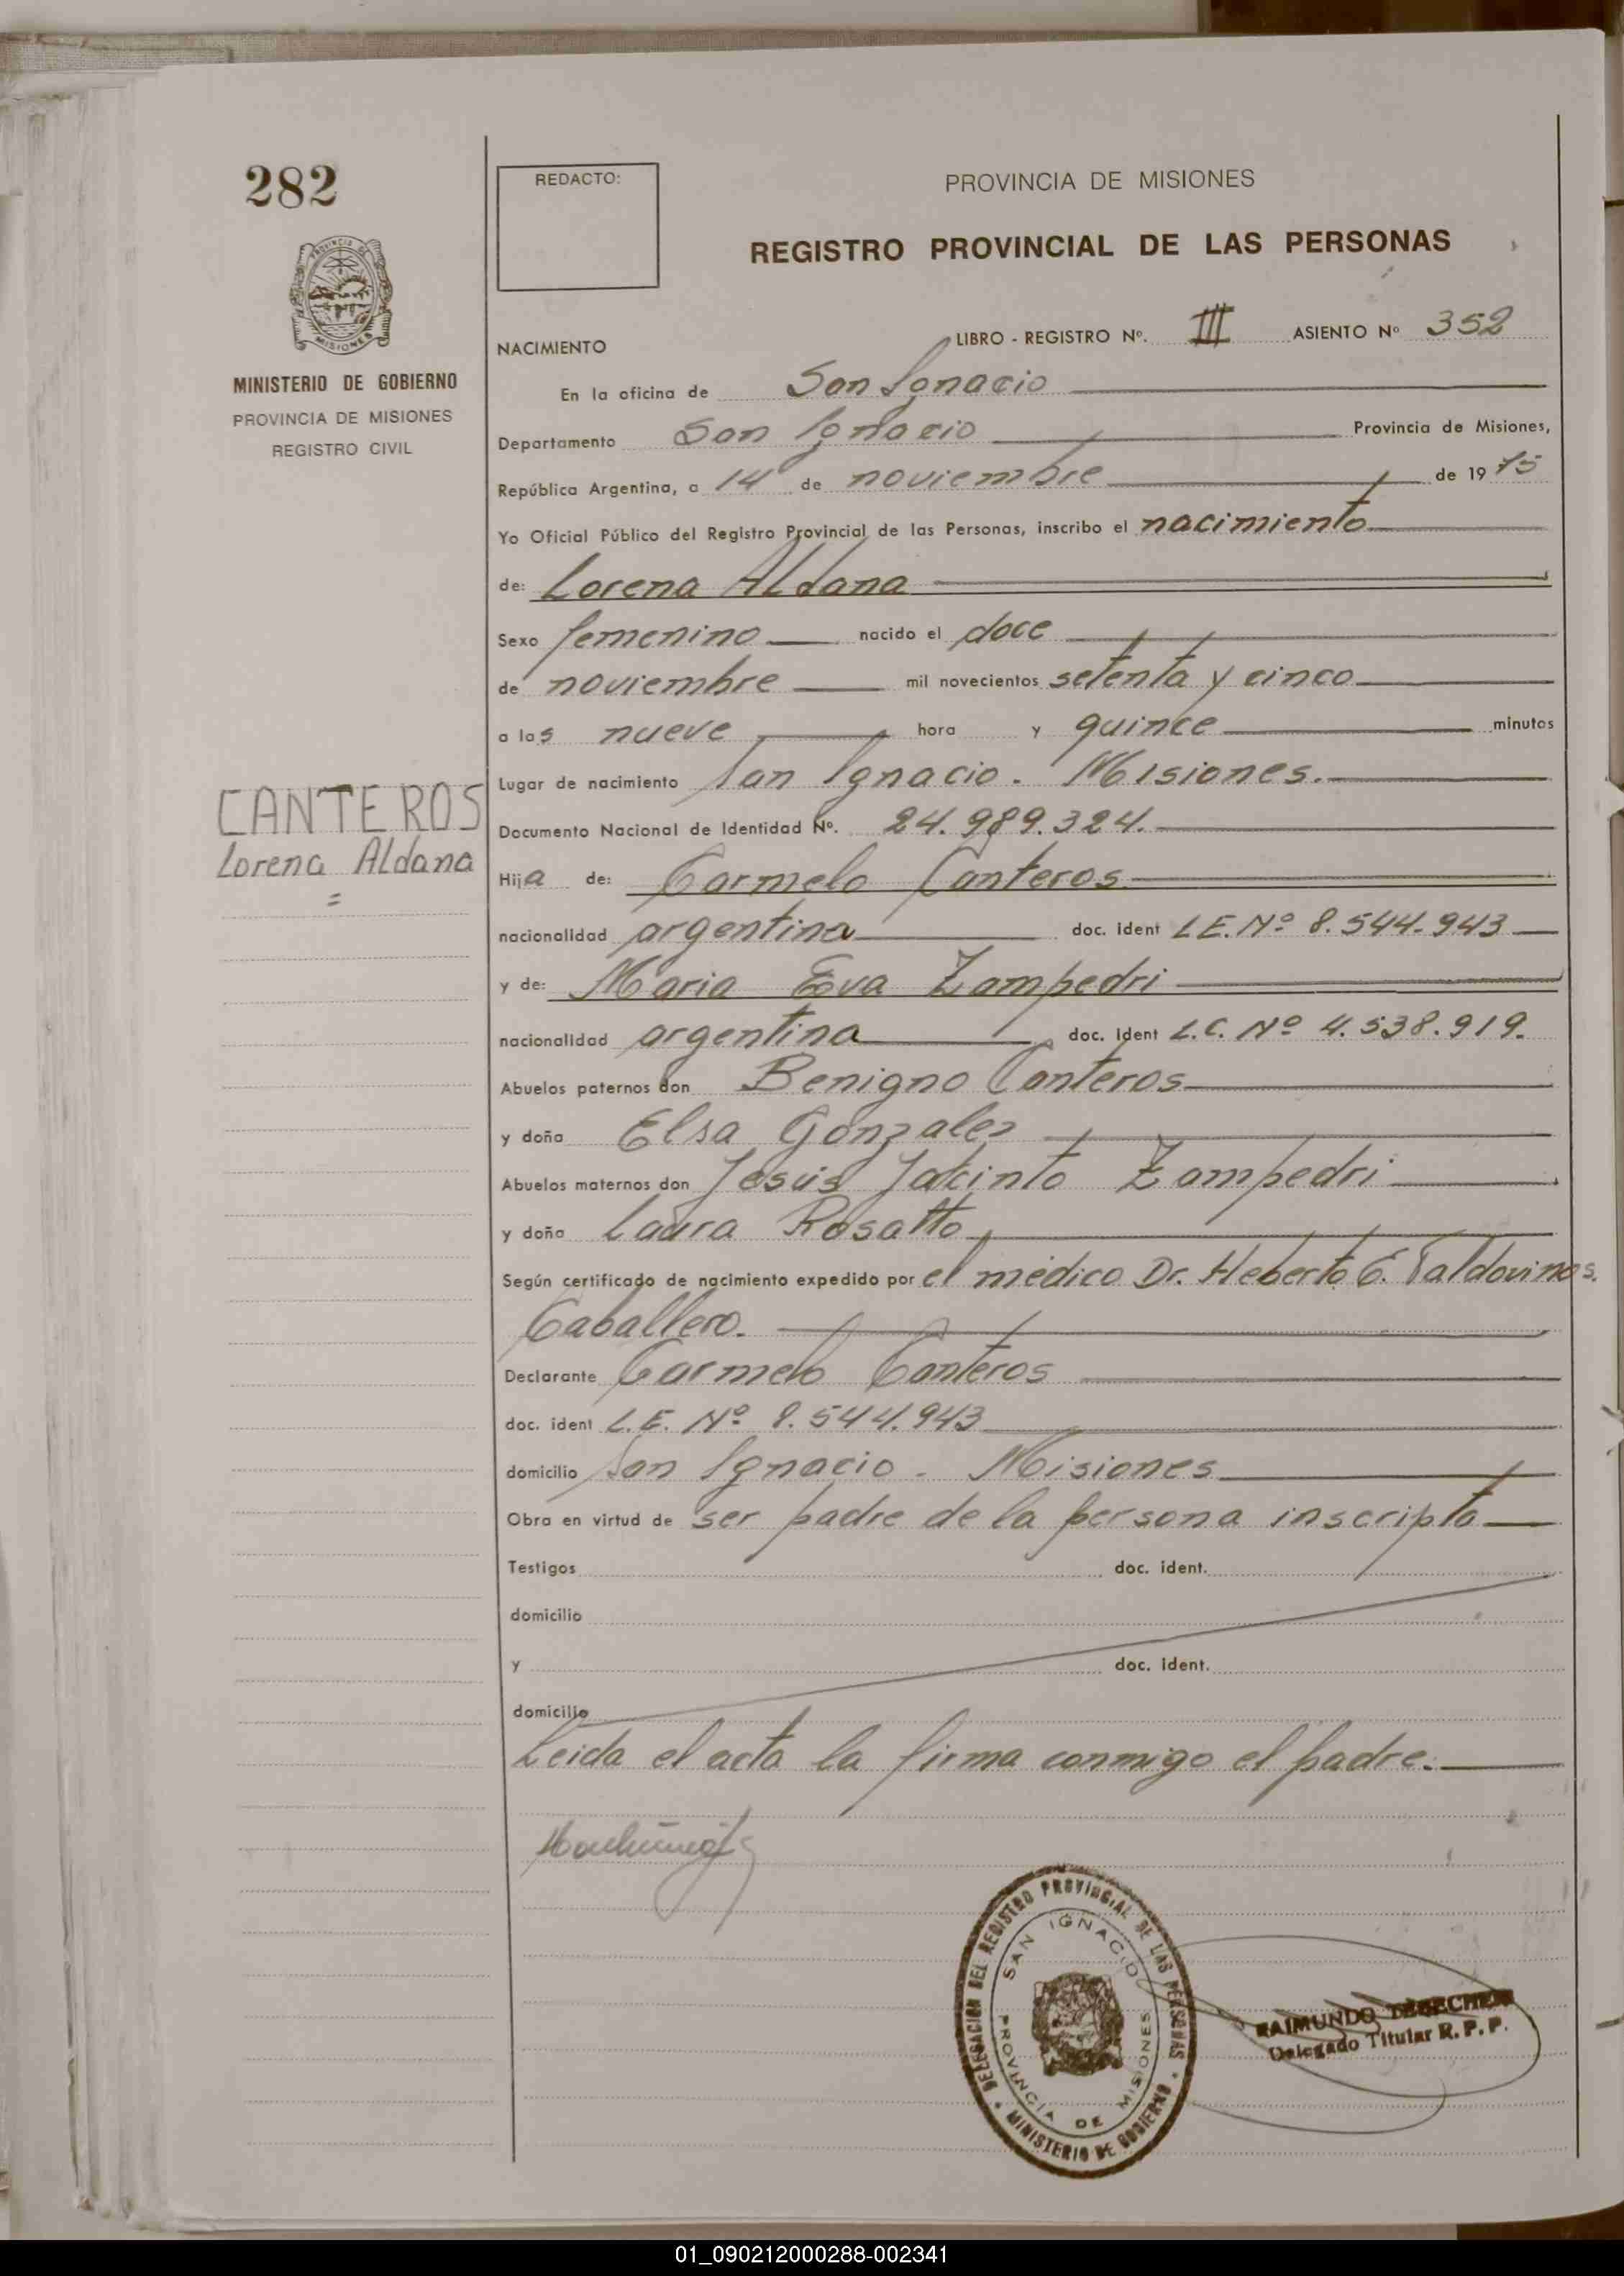 282
REDACTO:
PROVINCIA DE MISIONES
REGISTRO PROVINCIAL DE LAS PERSONAS
MINISTERIO DE GOBIERNO
PROVINCIA DE MISIONES
REGISTRO CIVIL
NACIMIENTO LIBRO - REGISTRO Nº. III ASIENTO Nº 352
En la oficina de San Ignacio
Departamento San Ignacio Provincia de Misiones,
República Argentina, a 14 de noviembre de 1975
Yo Oficial Público del Registro Provincial de las Personas, inscribo el nacimiento
de: Lorena Aldana
Sexo femenino nacido el doce
de noviembre mil novecientos setenta y cinco
a las nueve hora y quince minutos
Lugar de nacimiento San Ignacio. Misiones.
CANTEROS
Lorena Aldana
=
Documento Nacional de Identidad Nº. 24.989.324.
Hija de: Carmelo Canteros
nacionalidad argentina doc. ident L.E. Nº 8.544.943
y de: Maria Eva Zampedri
nacionalidad argentina doc. ident L.C. Nº 4.538.919.
Abuelos paternos don Benigno Canteros
y doña Elsa Gonzalez
Abuelos maternos don Jesús Jacinto Zampedri
y doña Laura Rosatto
Según certificado de nacimiento expedido por el médico Dr. Heberto E. Valdovinos.
Caballero.
Declarante Carmelo Canteros
doc. ident L.E. Nº 8.544.943
domicilio San Ignacio - Misiones
Obra en virtud de ser padre de la persona inscripta
Testigos doc. ident.
domicilio
y doc. ident.
domicilio
Leida el acta la firma conmigo el padre.
DELEGACION DEL REGISTRO PROVINCIAL DE LAS PERSONAS
SAN IGNACIO
PROVINCIA DE MISIONES
MINISTERIO DE GOBIERNO
RAIMUNDO
Delegado Titular R. P. P.
01_090212000288-002341